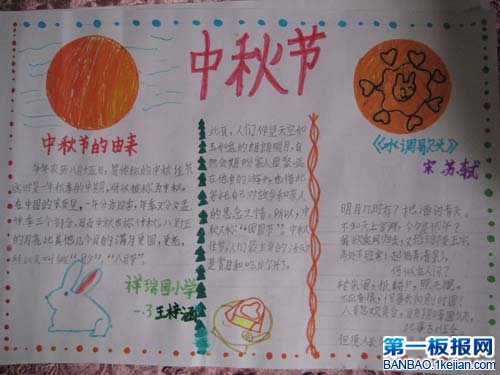 中秋节
中秋节的由来
每年农历八月十五日,是传统的中秋佳节
这时是一年秋季的中期,所以被称为中秋。
在中国的农历里,一年分为四季,每季又分为孟
仲季三个部分,因而中秋也称仲秋。八月十五
的月亮比其他几个月的满月更圆,更亮,
所以又叫做“月夕”,“八月节”。
祥瑞园小学
一.3 王梓涵
此夜,人们仰望天空如
玉如盘的朗朗明月,自
然会期盼家人团聚。远
在他乡的游子,也借此
寄托自己对故乡和亲人
的思念之情。所以,中
秋又称“团圆节”。中秋
佳节,人们最主要的活动
是赏月和吃月饼了。
《水调歌头》
宋 苏轼
明月几时有?把酒问青天。
不知天上宫阙,今夕是何年?
我欲乘风归去,又恐琼楼玉宇,
高处不胜寒!起舞弄清影,
何似在人间?
转朱阁,低绮户,照无眠。
不应有恨,何事长向别时圆?
人有悲欢离合,月有阴晴圆缺,
此事古难全。
但愿人长
第一板报网
BANBAO.1kejian.com